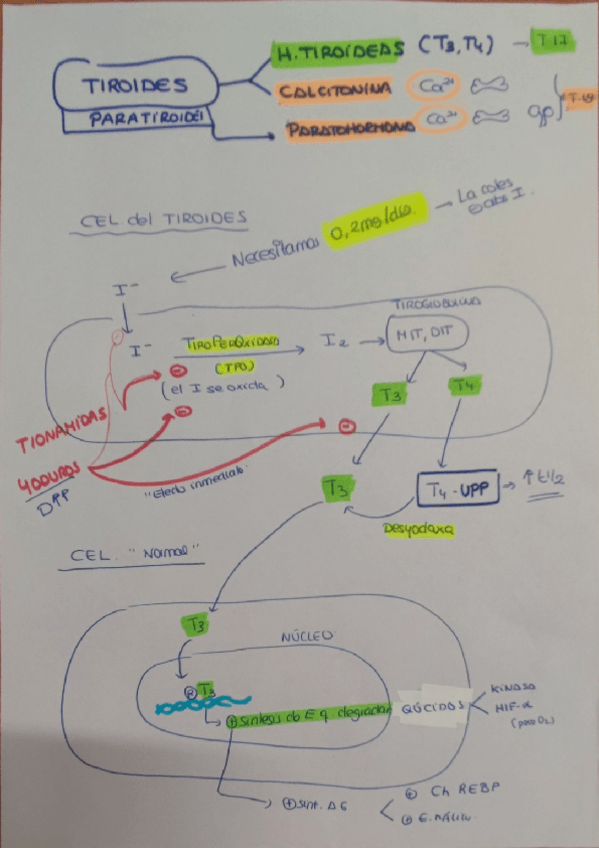 H. TIROIDEAS (T3, T4) → T-17
TIROIDES
CALCITONINA Ca2+
PARATIROIDES
PARATOHORMONA Ca2+ gp
CEL. del TIROIDES
Necesitamos 0,2mg/día. → La coles
I.
I-
TIROGLOBULINA
I-
TIROPEROXIDASA
(TPO)
I2
MIT, DIT
(el I se oxida)
T3
T4
TIONAMIDAS
YODUROS
"Efecto inmediato"
T3
T4-UPP → ↑ t1/2
Desyodasa
CEL. "Normal"
T3
NÚCLEO
⊕ T3
⊕ síntesis de E q. degradan GÚCIDOS
KINASA
HIF-α
(poco O2)
⊕ sint. AG
⊕ Ch REBP
⊕ E. MÁLICO